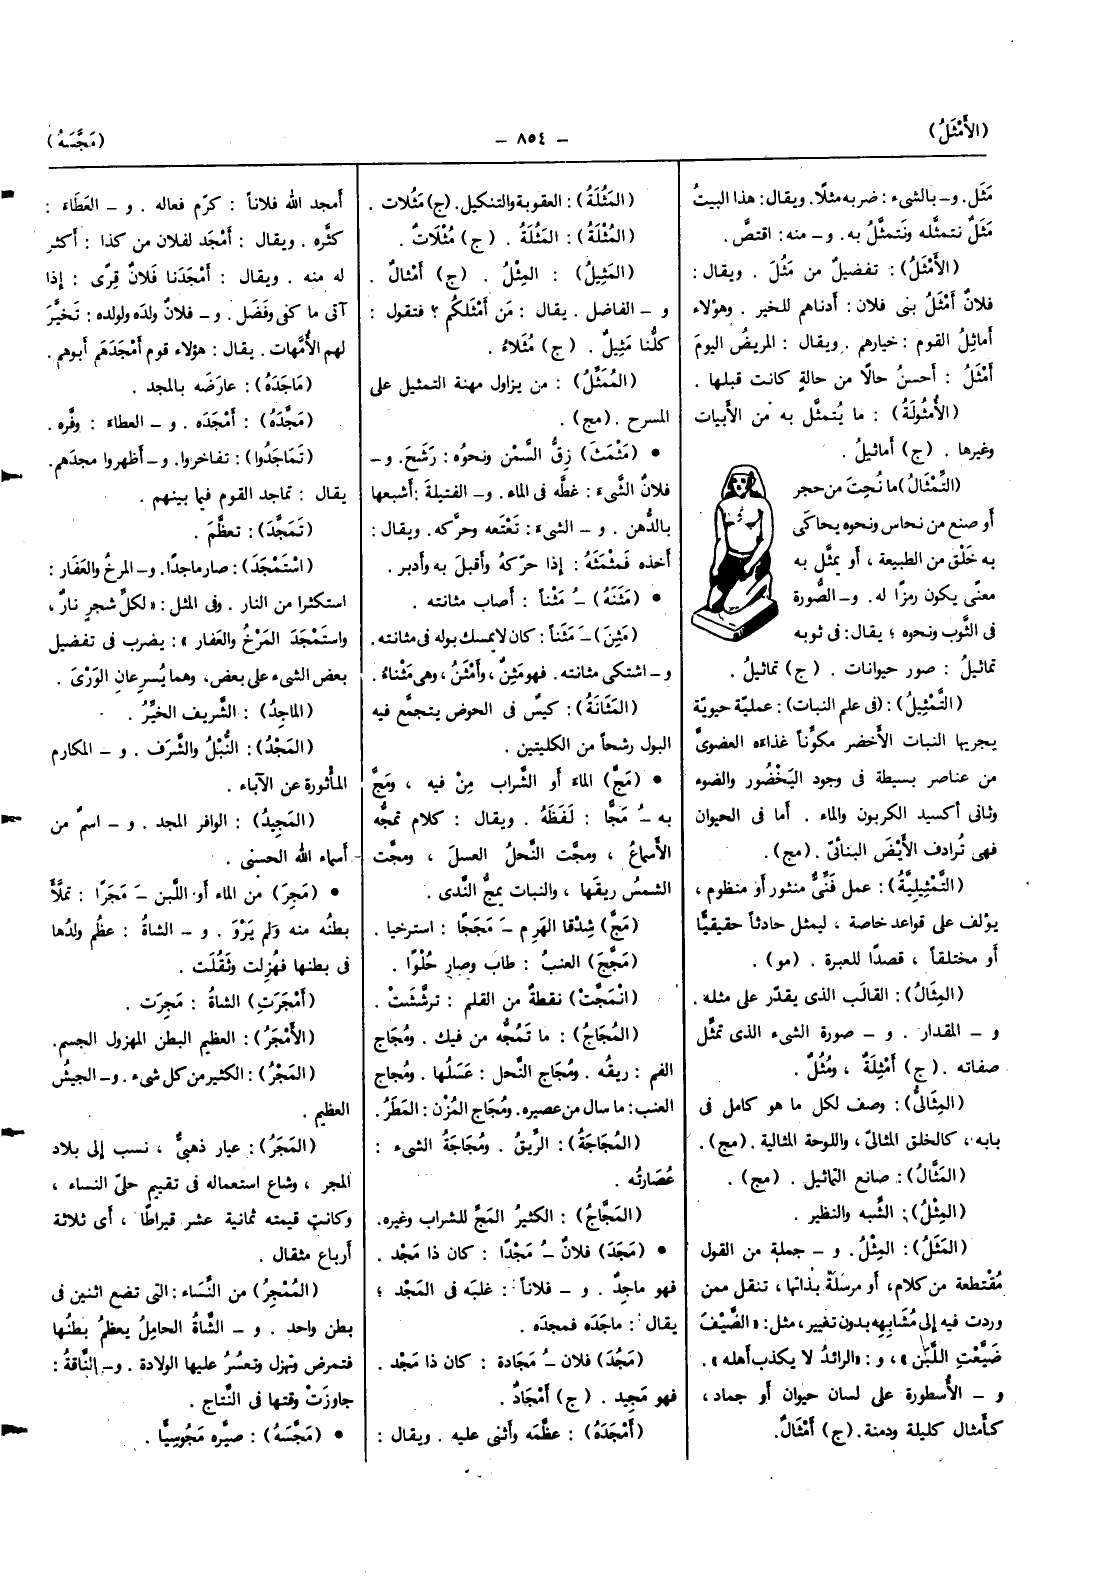 (الأَمْثَلُ)
– ٨٥٤ –
(مَجَّسَهُ)
مَثَل. و– بالشىء: ضربه مثلًا. ويقال: هذا البيتُ
مَثَلٌ نتمثَّله ونَتمثَّلُ به. و– منه: اقتصَّ.
(الأَمْثَلُ): تفضيلٌ من مَثُلَ. ويقال:
فلانٌ أَمْثَلُ بنى فلان: أدناهم للخير. وهؤلاء
أماثِلُ القوم: خيارهم. ويقال: المريضُ اليومَ
أَمْثَلُ: أحسنُ حالًا من حالةٍ كانت قبلها.
(الأُمْثُولَةُ): ما يُتمثَّل به من الأبيات
وغيرها. (ج) أماثيلُ.
(التِّمْثَالُ) ما نُحِتَ من حجر
أو صنع من نحاس ونحوه يحاكَى
به خَلْق من الطبيعة، أو يمثَّل به
معنًى يكون رمزًا له. و– الصُّورة
فى الثَّوب ونحوه؛ يقال: فى ثوبه
تماثيلُ: صور حيوانات. (ج) تماثيلُ.
(التَّمْثِيلُ): (فى علم النبات): عمليّة حيويّة
يجريها النبات الأخضر مكوِّناً غذاءَه العضوىّ
من عناصر بسيطة فى وجود اليَخْضُور والضوء
وثانى أكسيد الكربون والماء. أما فى الحيوان
فهى تُرادف الأَيْضَ البنائىّ. (مج).
(التَّمْثِيلِيَّةُ): عمل فَنِّىٌّ منثور أو منظوم،
يؤلف على قواعد خاصة، ليمثل حادثاً حقيقيًّا
أو مختلقاً، قصدًا للعبرة. (مو).
(المِثَالُ): القالَب الذى يقدّر على مثله.
و– المقدار. و– صورة الشىء الذى تمثِّل
صفاته. (ج) أَمْثِلَةٌ، ومُثُلٌ.
(المِثَالىُّ): وصف لكل ما هو كامل فى
بابه، كالخلق المثالىّ، واللوحة المثالية. (مج).
(المَثَّالُ): صانع التماثيل. (مج).
(المِثْلُ): الشِّبه والنظير.
(المَثَلُ): المِثْلُ. و– جملة من القول
مُقْتطعة من كلام، أو مرسَلَة بذاتها، تنقل ممن
وردت فيه إلى مُشَابِهِه بدون تغيير، مثل: «الصَّيْفَ
ضَيَّعْتِ اللَّبَن»، و: «الرائدُ لا يكذب أهله».
و– الأُسطورة على لسان حيوان أو جماد،
كأمثال كليلة ودمنة. (ج) أَمْثَالٌ.
(المَثُلَةُ): العقوبة والتنكيل. (ج) مَثُلات.
(المُثْلَةُ): المَثُلَةُ. (ج) مُثْلَاتٌ.
(المَثِيلُ): المِثْلُ. (ج) أَمْثالٌ.
و– الفاضل. يقال: مَن أَمْثَلكُم؟ فتقول:
كلُّنا مَثِيلٌ. (ج) مُثَلاءُ.
(المُمَثِّلُ): من يزاول مهنة التمثيل على
المسرح. (مج).
• (مَثْمَثَ) زِقُّ السَّمْن ونحوُه: رَشَحَ. و–
فلانٌ الشَّىءَ: غطَّه فى الماء. و– الفتيلةَ: أشبعها
بالدُّهن. و– الشىءَ: تَعْتَعه وحرَّكه. ويقال:
أخذه فَمَثْمَثَهُ: إذا حرّكهُ وأقبلَ به وأدبر.
• (مَثَنَهُ) –ُ مَثْناً: أصاب مثانته.
(مَثِنَ) –َ مَثَناً: كان لا يمسك بوله فى مثانته.
و– اشتكى مثانته. فهو مَثِنٌ، وأَمْثَنُ، وهى مَثْناءُ.
(المَثَانَةُ): كيسٌ فى الحوض يتجمَّع فيه
البول رشحاً من الكليتين.
• (مَجَّ) الماءَ أو الشَّراب مِنْ فيه، ومَجَّ
به –ُ مَجًّا: لَفَظَهُ. ويقال: كلام تمجُّه
الأسماعُ، ومجَّت النَّحلُ العسلَ، ومجَّت
الشمسُ ريقَها، والنبات يمجُّ النَّدى.
(مَجَّ) شِدْقا الهَرِم –َ مَجَجًا: استرخيا.
(مَجَّجَ) العنبُ: طابَ وصار حُلْوًا.
(انْمَجَّتْ) نقطةٌ من القلم: ترشَّشَتْ.
(المُجَاجُ): ما تَمُجُّه من فيك. ومُجَاج
الفم: ريقُه. ومُجَاج النَّحل: عَسَلُها. ومُجاج
العنب: ما سال من عصيره. ومُجَاج المُزْن: المَطَرُ.
(المُجَاجَةُ): الرِّيقُ. ومُجَاجَةُ الشىء:
عُصَارتُه.
(المَجَّاجُ): الكثيرُ المَجِّ للشراب وغيره.
• (مَجَدَ) فلانٌ –ُ مَجْدًا: كان ذا مَجْد.
فهو ماجِدٌ. و– فلاناً: غلبَه فى المَجْد؛
يقال: ماجَدَه فمجدَه.
(مَجُدَ) فلان –ُ مَجَادة: كان ذا مَجْد.
فهو مَجِيد. (ج) أَمْجَادٌ.
(أَمْجَدَهُ): عظَّمَه وأثنى عليه. ويقال:
أَمجد الله فلاناً: كرّم فعاله. و– العَطَاءَ:
كثَّره. ويقال: أَمْجَد لفلان من كذا: أكثر
له منه. ويقال: أَمْجَدَنا فَلانٌ قِرًى: إذا
آتى ما كفى وفَضَل. و– فلانٌ ولدَه ولولده: تَخيَّرَ
لهم الأُمَّهات. يقال: هؤلاء قوم أَمْجَدَهَم أبوهم.
(مَاجَدَهُ): عارَضَه بالمجد.
(مَجَّدَهُ): أَمْجَدَه. و– العطاءَ: وفَّره.
(تَمَاجَدُوا): تفاخروا. و– أظهروا مجدَهم.
يقال: تماجد القوم فيما بينهم.
(تَمَجَّدَ): تعظَّمَ.
(اسْتَمْجَدَ): صار ماجدًا. و– المرخُ والعَفَار:
استكثرا من النار. وفى المثل: «لكلِّ شجرٍ نارٌ،
واستَمْجَدَ المَرْخُ والعَفار»: يضرب فى تفضيل
بعض الشىء على بعض، وهما يُسرعانِ الوَرْىَ.
(الماجِدُ): الشَّريف الخيِّرُ.
(المَجْدُ): النُّبْلُ والشَّرَف. و– المكارم
المأْثورة عن الآباء.
(المَجِيدُ): الوافر المجد. و– اسمٌ من
أسماء الله الحسنى.
• (مَجِرَ) من الماء أو اللَّبن –َ مَجَرًا: تملَّأَ
بطنُه منه ولَم يَرْوَ. و– الشاةُ: عظُم ولدُها
فى بطنها فهُزِلت وثَقُلَت.
(أَمْجَرَتِ) الشاةُ: مَجِرَت.
(الأَمْجَرُ): العظيم البطن المهزول الجسم.
(المَجْرُ): الكثير من كل شىء. و– الجيشُ
العظيم.
(المَجَرُ): عيار ذهبىٌّ، نسب إلى بلاد
المجر، وشاع استعماله فى تقييم حلىِّ النساء،
وكانت قيمته ثمانية عشر قيراطًا، أى ثلاثة
أرباع مثقال.
(المُمْجِرُ) من النِّسَاء: التى تضع اثنين فى
بطن واحد. و– الشَّاةُ الحامِلُ يعظمُ بطنُها
فتمرض وتهزل وتعسُرُ عليها الولادة. و– النَّاقةُ:
جاوزَتْ وقتها فى النَّتاج.
• (مَجَّسَهُ): صيَّره مَجُوسِيًّا.